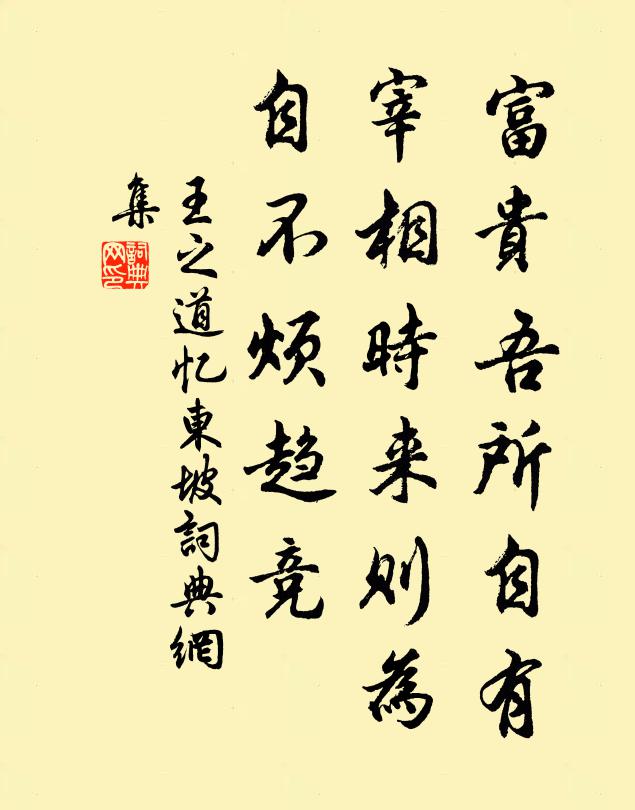 富貴吾所自有
宰相時来則為
自不烦趋竞
王之道忆東坡詞典網
集
詞典
网印